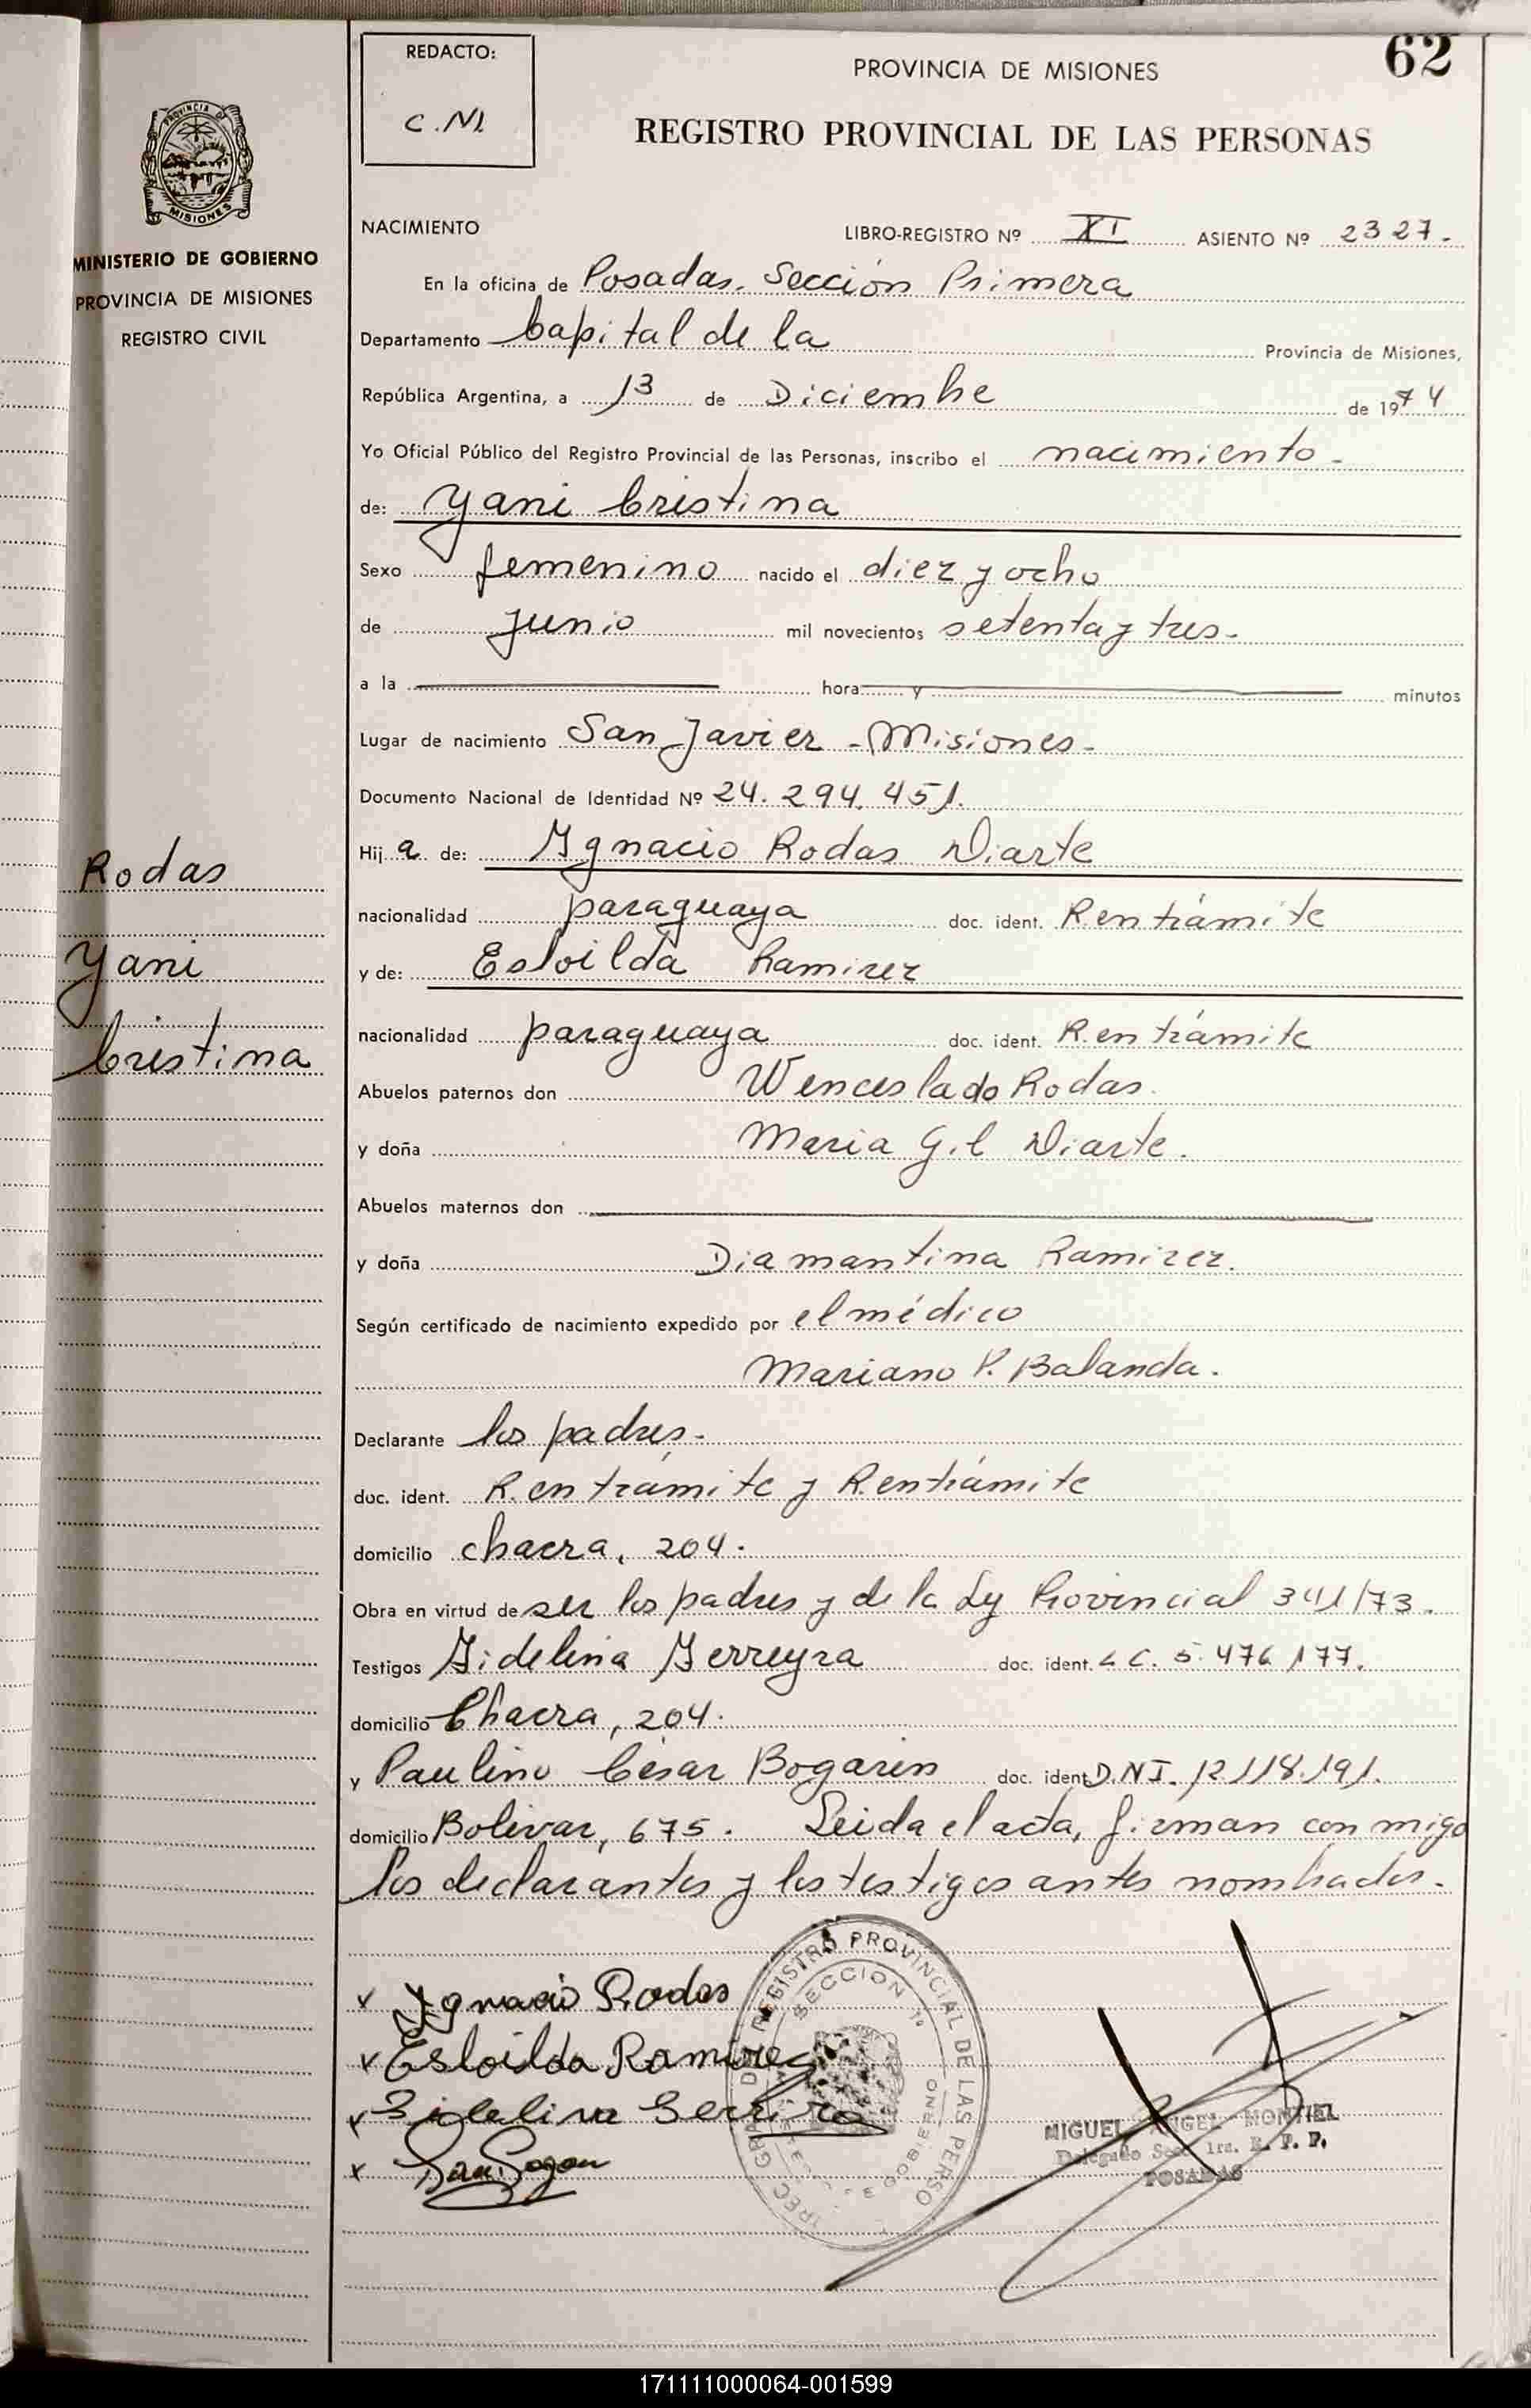 62
REDACTO:
C.M.
PROVINCIA DE MISIONES
REGISTRO PROVINCIAL DE LAS PERSONAS
PROVINCIA DE
MISIONES
MINISTERIO DE GOBIERNO
PROVINCIA DE MISIONES
REGISTRO CIVIL
NACIMIENTO LIBRO-REGISTRO Nº XI ASIENTO Nº 2327.
En la oficina de Posadas. Sección Primera
Departamento Capital de la Provincia de Misiones,
República Argentina, a 13 de Diciembre de 1974
Yo Oficial Público del Registro Provincial de las Personas, inscribo el nacimiento.
de: Yani Cristina
Sexo femenino nacido el diez y ocho
de junio mil novecientos setenta y tres.
a la hora y minutos
Lugar de nacimiento San Javier - Misiones.
Documento Nacional de Identidad Nº 24.294.451.
Hija de: Ygnacio Rodas Diarte
nacionalidad paraguaya doc. ident. R. en trámite
y de: Esloilda Ramirez
nacionalidad paraguaya doc. ident. R. en trámite
Rodas
Yani
Cristina
Abuelos paternos don Wenceslado Rodas.
y doña Maria Gil Diarte.
Abuelos maternos don
y doña Diamantina Ramirez.
Según certificado de nacimiento expedido por el médico
Mariano P. Balanda.
Declarante los padres.
doc. ident. R. en trámite y R. en trámite
domicilio chacra, 204.
Obra en virtud de ser los padres y de la Ley Provincial 341/73.
Testigos doc. ident. L C. 5.476.177.
domicilio Chacra, 204.
y Paulino César Bogarin doc. ident D.N.I. 12.118.191.
domicilio Bolivar, 675. Leida el acta, firman conmigo
los declarantes y los testigos antes nombrados.
x Ygnacio Rodas
x Esloilda Ramirez
x
x
REGISTRO PROVINCIAL DE LAS PERSO
SECCION 1ª
GOBIERNO
MIGUEL ANGEL MONTIEL
Delegado Sec. 1ra. R. P. P.
POSADAS
171111000064-001599